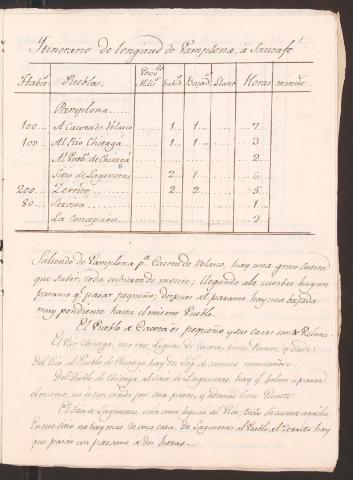 Itinerario de longitud de Pamplona, a Santafe
Habitˢ. Pueblos. Milic. Subidˢ Bajadˢ Llano Horas minutˢ
Pamplona
100 A Cacota de Velasco 1 1 7
100 Al Rio Chitagá 1 1 3
Al Pueblo de Chitagá 2
Sitio de Lagunetas 2 1 6
200 Zerrito 2 2 5
80 Servitá 1
La Concepcion 2
Saliendo de Pamplona pª Cacota de Velasco, hay una gran Cuesta
que subir, toda cubierta de monte; llegando ala cumbre hay un
paramo qᵉ pasar pequeño; despues al paramo hay una bajada
muy pendiente hasta el mismo Pueblo.
El Pueblo de Cacota es pequeño y sus casas son de Palma.
El Rio Chitaga, tres leguas de Cacota, tiene Puente, y desde
Del Rio al Pueblo de Chitaga hay dos leg.ˢ de camino
Del Pueblo de Chitaga al sitio de Lagunetas, hay qᵉ bolver a pasar
el mismo, por otra parte, y ademas tiene Puente.
El sitio de Lagunetas, está una legua del Rio, todo de cuesta arriba.
En este sitio no hay mas de una casa. De Lagunetas al Pueblo del Zerrito hay
que pasar un paramo de dos horas.